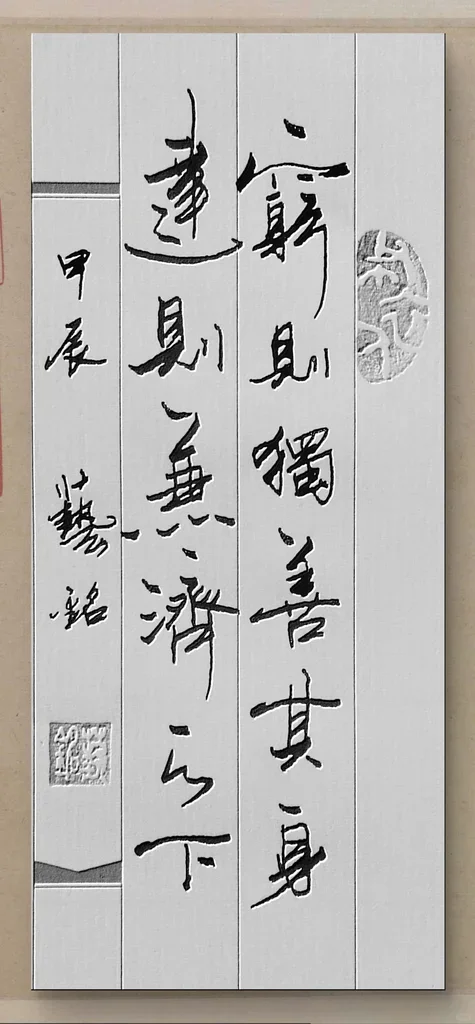 窮則獨善其身
達則兼濟天下
甲辰 藝銘